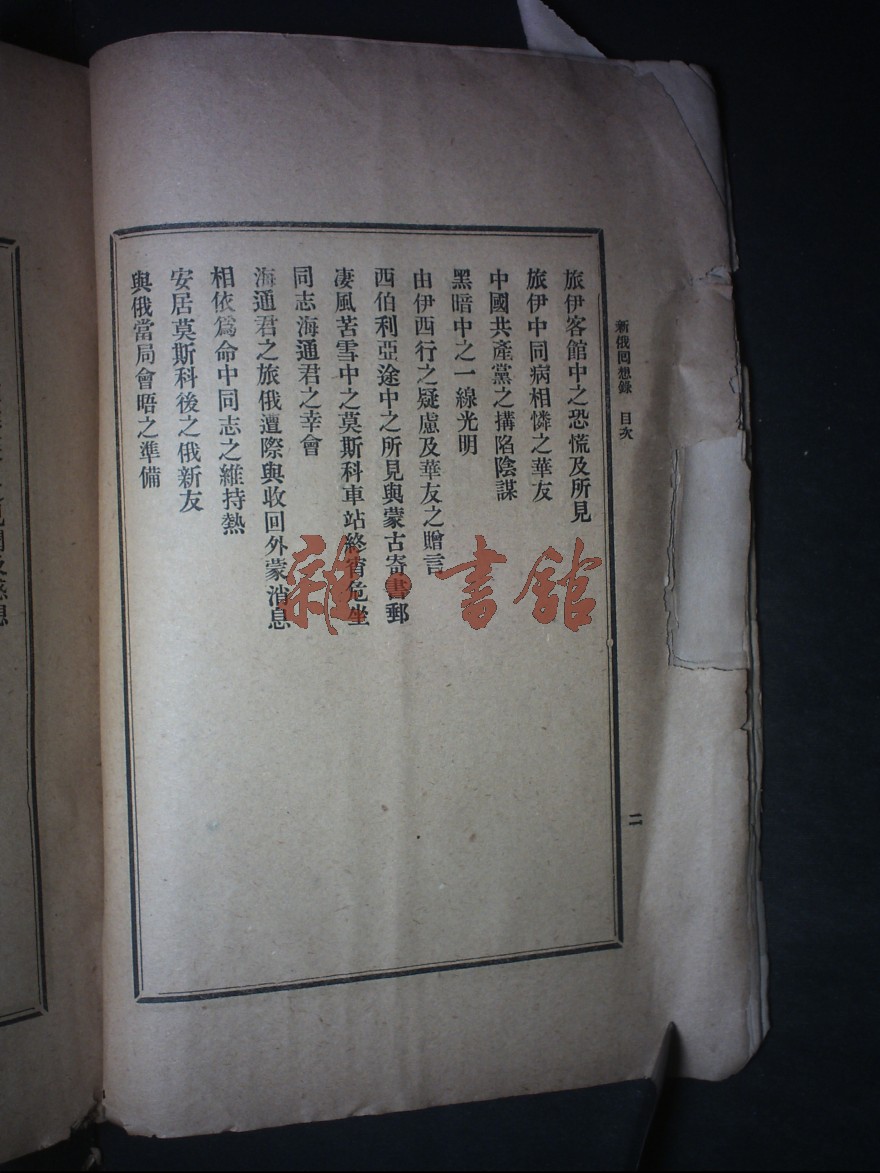 新俄囘想錄 目次
二
旅伊客館中之恐慌及所見
旅伊中同病相憐之華友
中國共產黨之搆陷陰謀
黑暗中之一線光明
由伊西行之疑慮及華友之贈言
西伯利亞途中之所見與蒙古寄書郵
凄風苦雪中之莫斯科車站終宵危坐
同志海通君之幸會
海通君之旅俄遭際與收回外蒙消息
相依爲命中同志之維持熱
安居莫斯科後之俄新友
與俄當局會晤之準備
雜·書館
感想